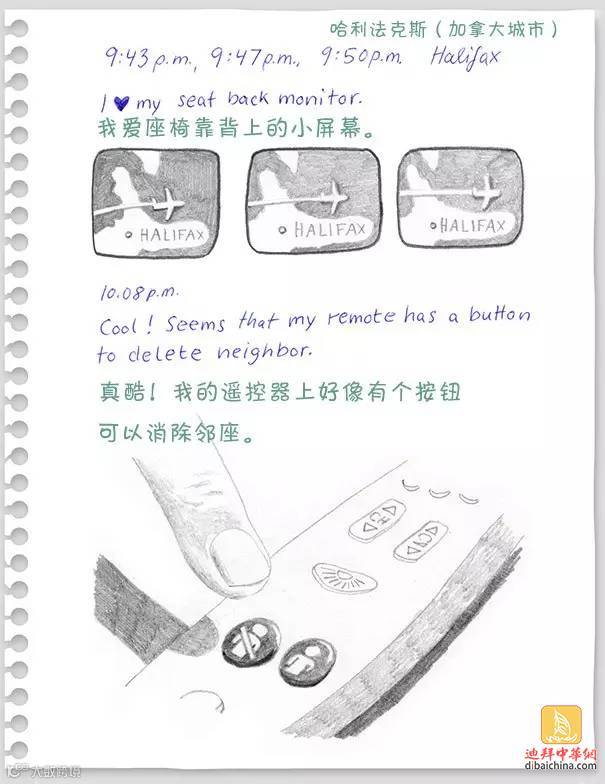 哈利法克斯（加拿大城市）
9:43p.m., 9:47p.m., 9:50p.m. Halifax
I ♥ my seat back monitor.
我爱座椅靠背上的小屏幕。
HALIFAX
HALIFAX
HALIFAX
10.08p.m.
Cool! Seems that my remote has a button
to delete neighbor.
真酷！我的遥控器上好像有个按钮
可以消除邻座。
CH
迪拜中華網
dibaichina.com
大数跨境